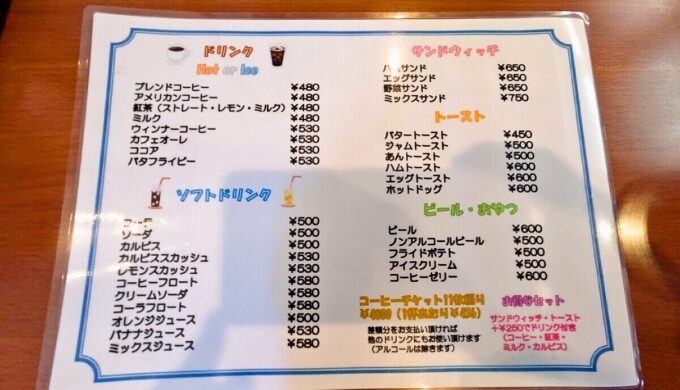 ドリンク
Hot or Ice
ブレンドコーヒー ¥480
アメリカンコーヒー ¥480
紅茶（ストレート・レモン・ミルク） ¥480
ミルク ¥480
ウィンナーコーヒー ¥530
カフェオーレ ¥530
ココア ¥530
バタフライピー ¥530
ソフトドリンク
¥500
ソーダ ¥500
カルピス ¥500
カルピススカッシュ ¥530
レモンスカッシュ ¥530
コーヒーフロート ¥580
クリームソーダ ¥580
コーラフロート ¥580
オレンジジュース ¥500
バナナジュース ¥530
ミックスジュース ¥580
サンドウィッチ
ハムサンド ¥650
エッグサンド ¥650
野菜サンド ¥650
ミックスサンド ¥750
トースト
バタートースト ¥450
ジャムトースト ¥500
あんトースト ¥500
ハムトースト ¥600
エッグトースト ¥600
ホットドッグ ¥600
ビール・おやつ
ビール ¥600
ノンアルコールビール ¥500
フライドポテト ¥500
アイスクリーム ¥500
コーヒーゼリー ¥600
コーヒーチケット11枚綴り
(1杯あたり
差額分をお支払い頂ければ
他のドリンクにもお使い頂けます
（アルコールは除きます）
お得なセット
サンドウィッチ・トースト
＋¥250でドリンク付き
（コーヒー・紅茶・
ミルク・カルピス）